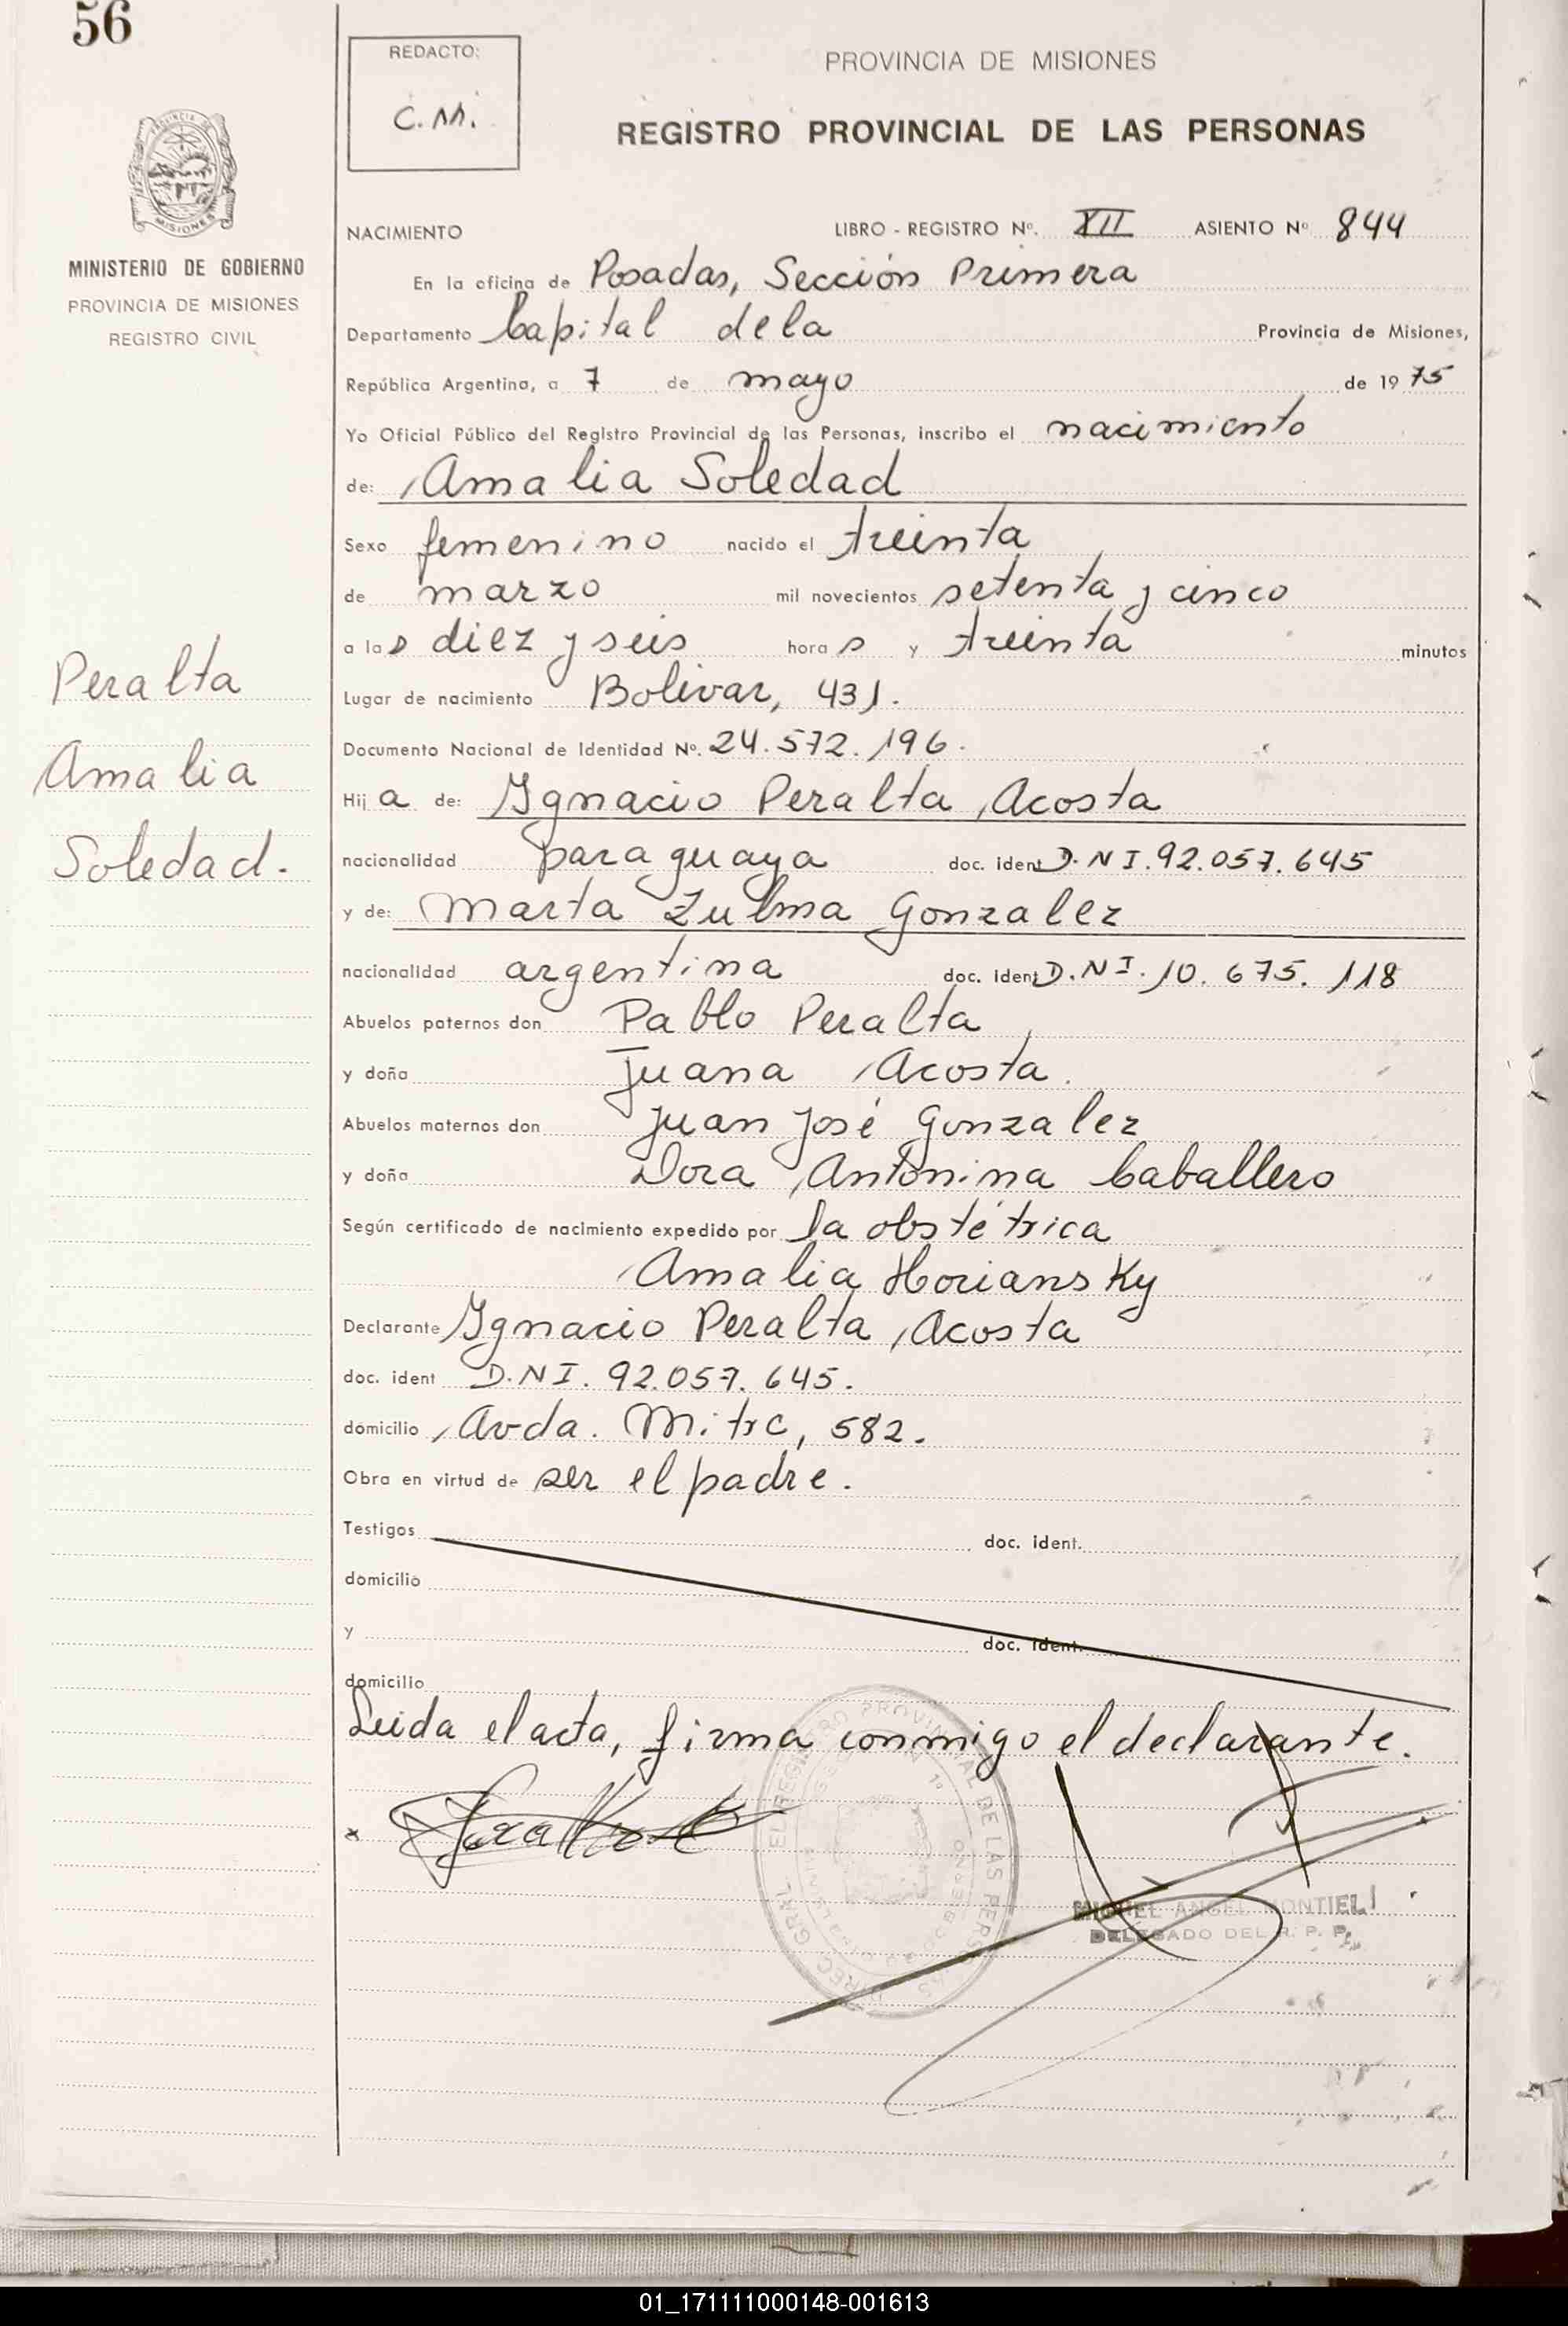 56
REDACTO:
C.M.
PROVINCIA DE MISIONES
REGISTRO PROVINCIAL DE LAS PERSONAS
MINISTERIO DE GOBIERNO
PROVINCIA DE MISIONES
REGISTRO CIVIL
NACIMIENTO LIBRO - REGISTRO Nº. XII ASIENTO Nº 844
En la oficina de Posadas, Sección Primera
Departamento Capital de la Provincia de Misiones,
República Argentina, a 7 de mayo de 1975
Yo Oficial Público del Registro Provincial de las Personas, inscribo el nacimiento
de: Amalia Soledad
Sexo femenino nacido el treinta
de marzo mil novecientos setenta y cinco
a las diez y seis horas y treinta minutos
Lugar de nacimiento Bolivar, 431.
Documento Nacional de Identidad Nº. 24.572.196.
Peralta
Amalia
Soledad.
Hija de: Ygnacio Peralta Acosta
nacionalidad paraguaya doc. ident D.N I. 92.057.645
y de: Marta Zulma Gonzalez
nacionalidad argentina doc. ident D.N I. 10.675.118
Abuelos paternos don Pablo Peralta
y doña Juana Acosta.
Abuelos maternos don Juan José Gonzalez
y doña Dora Antonina Caballero
Según certificado de nacimiento expedido por la obstétrica
Amalia Horiansky
Declarante Ygnacio Peralta Acosta
doc. ident D.N I. 92.057.645.
domicilio Avda. Mitre, 582.
Obra en virtud de ser el padre.
Testigos doc. ident.
domicilio
y doc. ident.
domicilio
Leida el acta, firma conmigo el declarante.
MIGUEL ANGEL MONTIEL
DELEGADO DEL R. P. P.
01_171111000148-001613